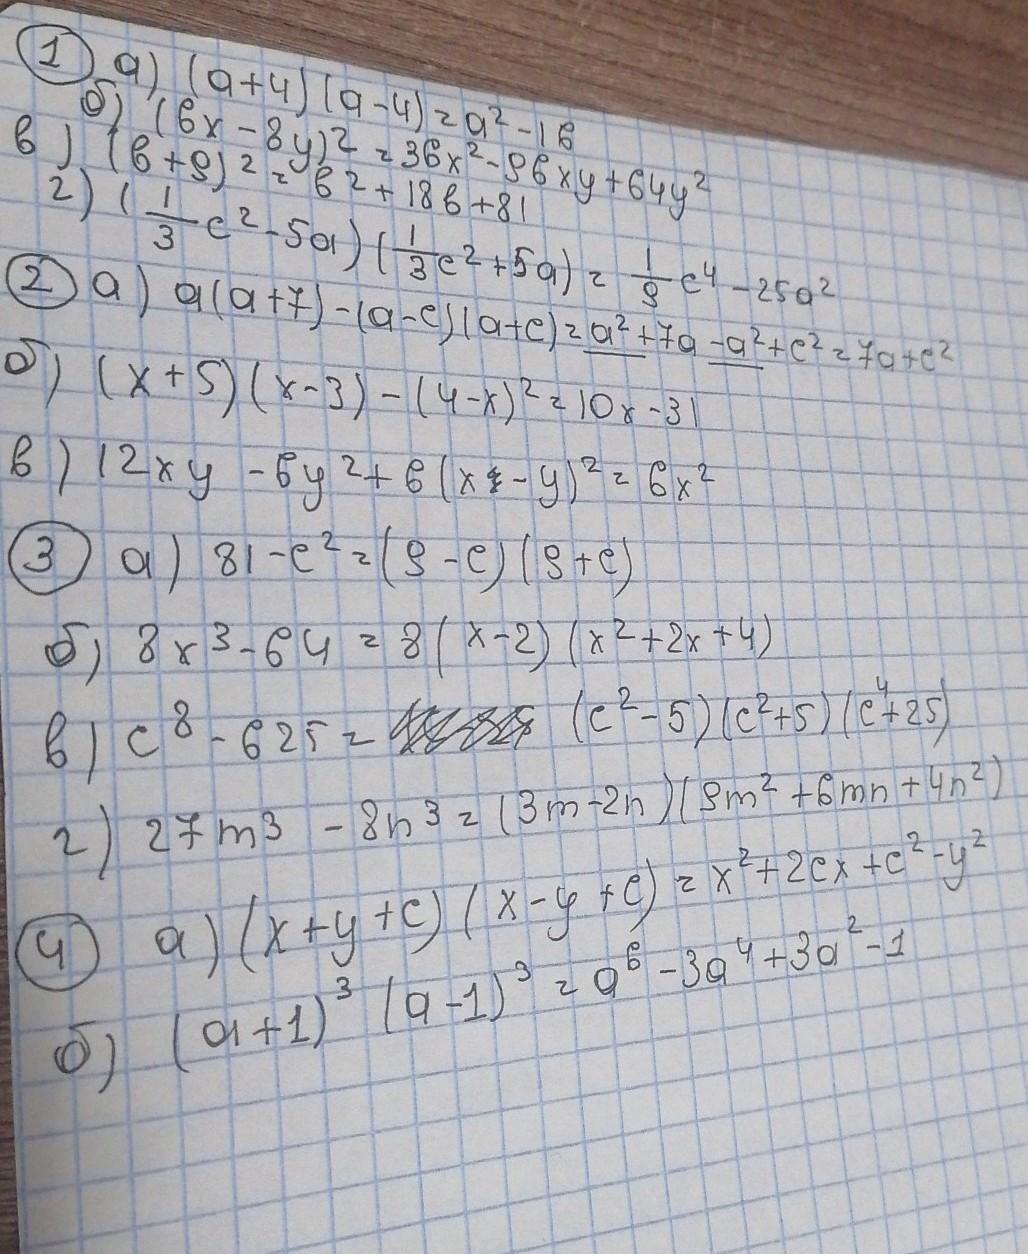 1 а) (a+4)(a-4)=a²-16
б) (6x-8y)²=36x²-96xy+64y²
в) (b+9)²=b²+18b+81
г) (1/3 c²-5a)(1/3 c²+5a)=1/9 c⁴-25a²
2 а) a(a+7)-(a-c)(a+c)=a²+7a-a²+c²=7a+c²
б) (x+5)(x-3)-(4-x)²=10x-31
в) 12xy-6y²+6(x-y)²=6x²
3 а) 81-c²=(9-c)(9+c)
б) 8x³-64=8(x-2)(x²+2x+4)
в) c⁸-625=(c²-5)(c²+5)(c⁴+25)
г) 27m³-8n³=(3m-2n)(9m²+6mn+4n²)
4 а) (x+y+c)(x-y+c)=x²+2cx+c²-y²
б) (a+1)³(a-1)³=a⁶-3a⁴+3a²-1